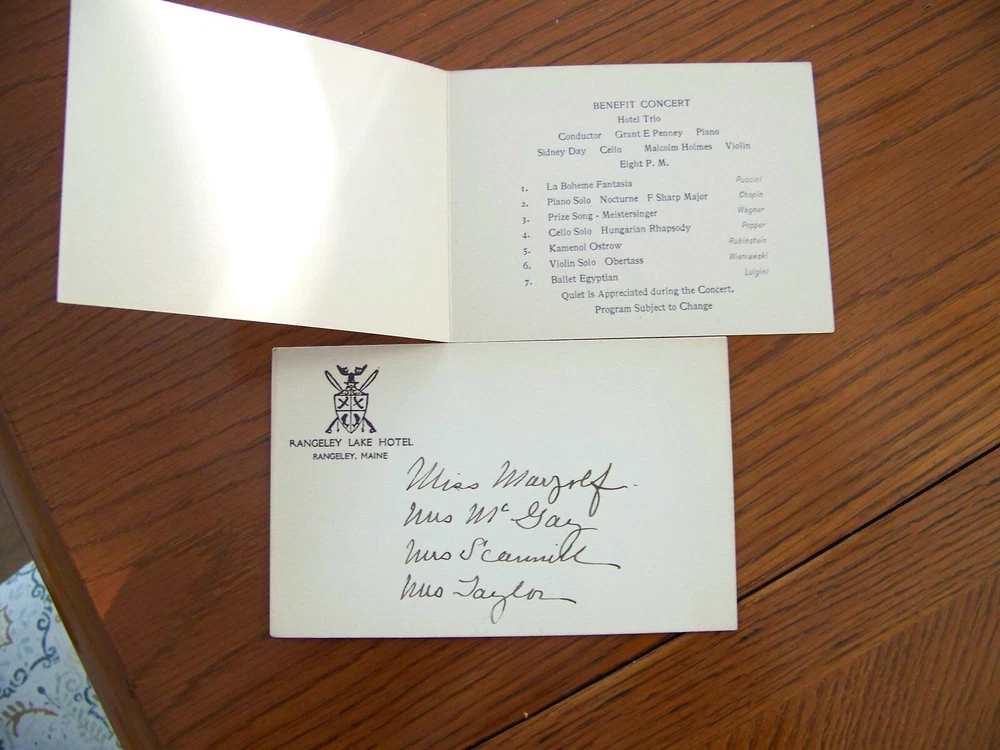 BENEFIT CONCERT
Hotel Trio
Conductor Grant E Penney Piano
Sidney Day Cello Malcolm Holmes Violin
Eight P. M.
1. La Boheme Fantasia Puccini
2. Piano Solo Nocturne F Sharp Major Chopin
3. Prize Song - Meistersinger Wagner
4. Cello Solo Hungarian Rhapsody Popper
5. Kamenoi Ostrow Rubinstein
6. Violin Solo Obertass Wieniawski
7. Ballet Egyptian Luigini
Quiet is Appreciated during the Concert.
Program Subject to Change
RANGELEY LAKE HOTEL
RANGELEY, MAINE
Miss Marzolf.
Mrs Mc Gay
Mrs Scannell
Mrs Taylor